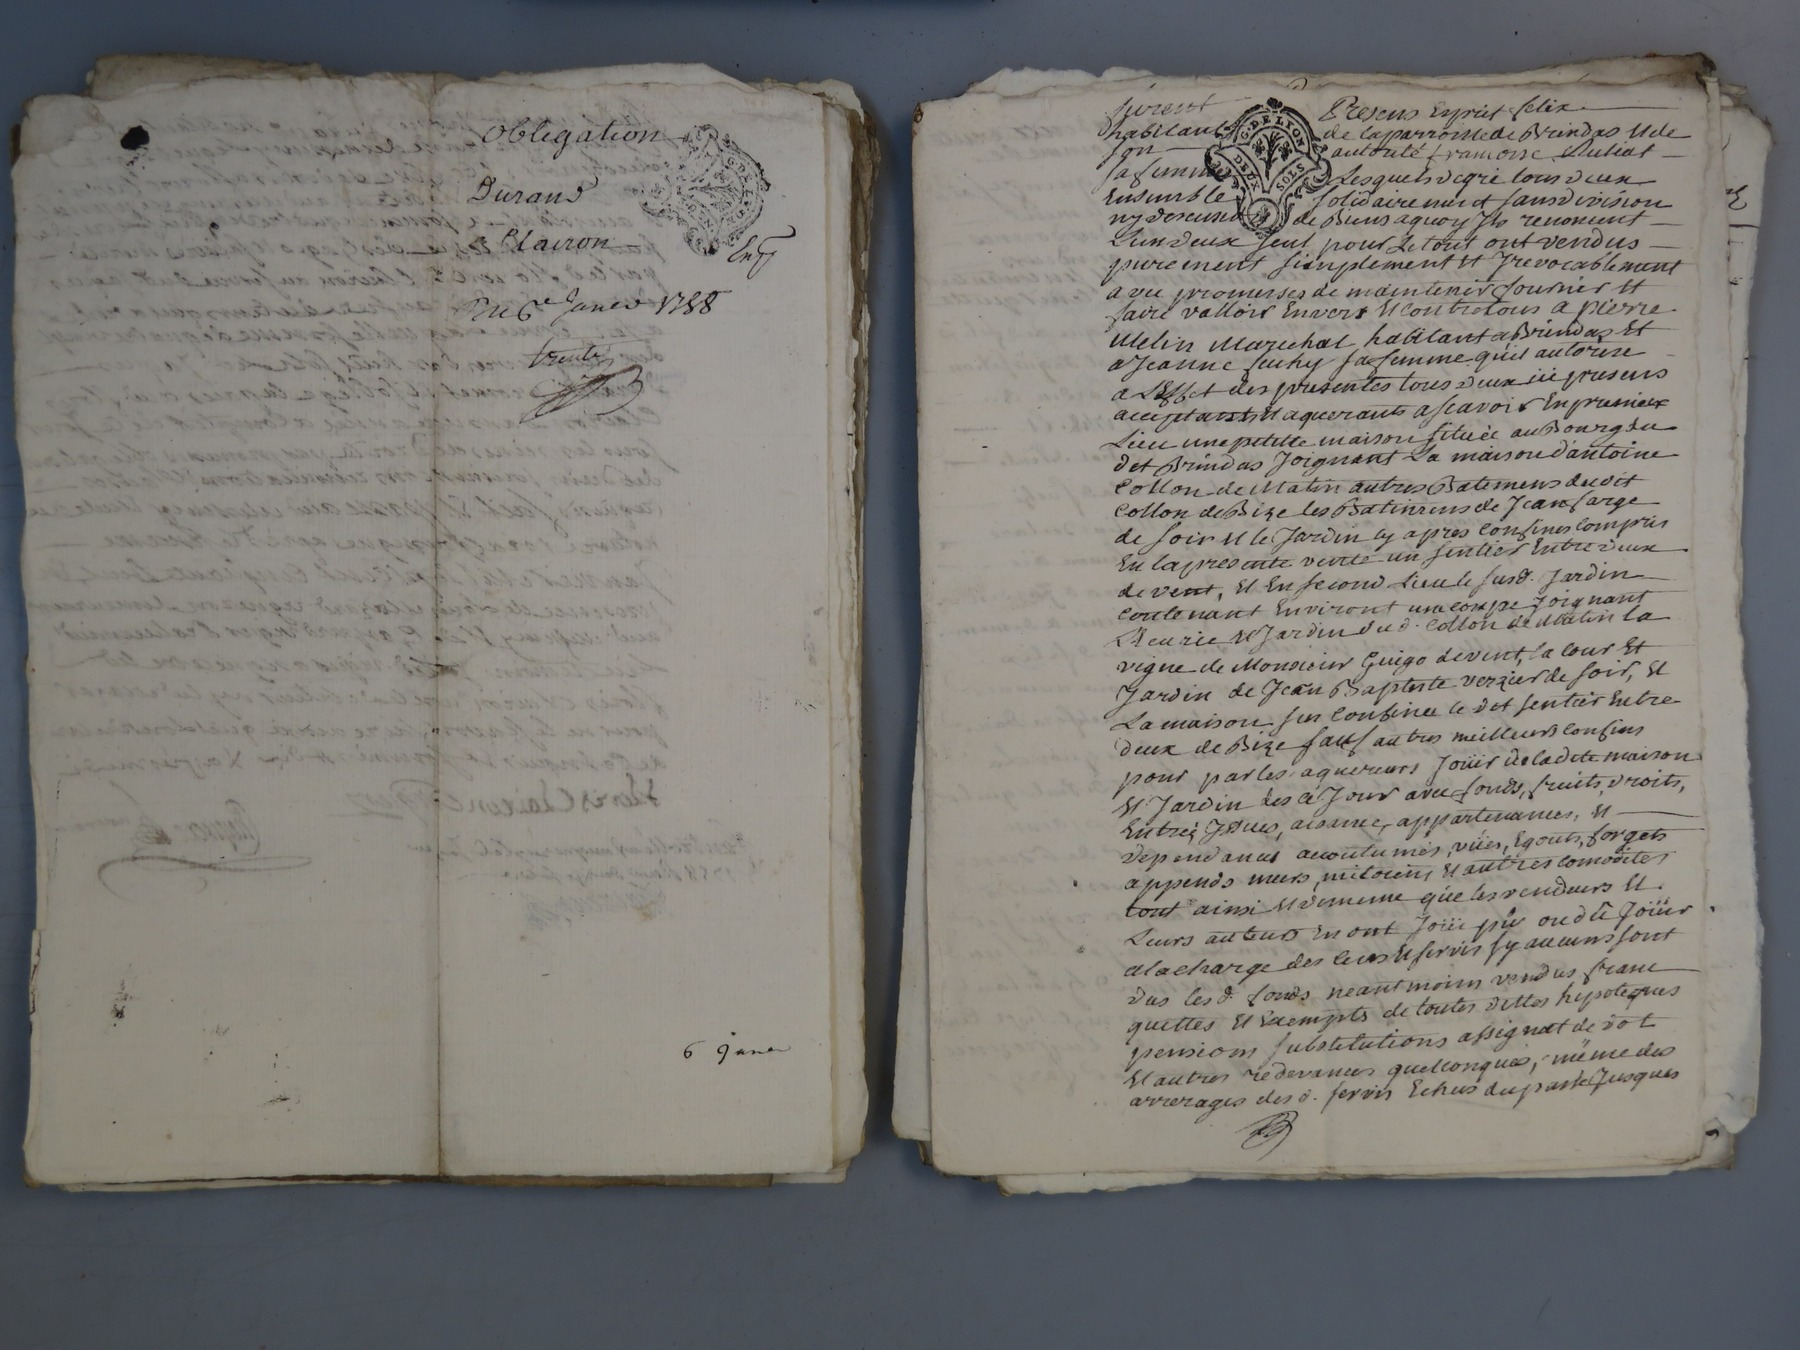 Obligation
Durand
Clairon
Du 6e Janer 1788
6 Janer
G. DE LION
DEUX SOLS
furent Presens Esprit felix
habitant de la parroisse de Brindas et de
son autorité francoise
sa femme Lesquels de gré tous deux
Ensemble solidairement sans division
ny discussion de Biens a quoy Ils renoncent
L'un d'eux seul pour Le tout ont vendus
purement simplement et Irevocablement
avec promesses de maintenir fournir et
faire valloir Envers et contre tous a pierre
Melin Marechal habitant a Brindas et
a Jeanne suchy sa femme qu'il autorise
a L'effet des presentes tous deux ici presens
acceptants et aquerants a scavoir En premier
Lieu une petite maison située au Bourg du
dt Brindas Joignant La maison d'antoine
Collon de Matin autres Batimens du dit
Collon de Bize les Batimens de Jean farge
de soir et le Jardin cy apres Confinés compris
En la presente vente un sentier Entre deux
de vent, et En second Lieu le susd. Jardin
contenant Environt une coupe Joignant
L'Ecurie et Jardin dud. Collon de Matin la
vigne de Monsieur Guigo de vent, la cour et
Jardin de Jean Baptiste verzier de soir, et
La maison sus confinee le dt sentier Entre
deux de Bize sauf autres meilleurs confins
pour par les aquereurs Joüir de la dte maison
et Jardin des ce Jour avec fonds, fruits, droits,
Entrée, Issues, aisance, appartenances, et
dependances accoutumés, vües, Egouts, forgets
appends murs, mitoiens et autres comodites
tout ainsi et de meme que les vendeurs et
Leurs auteurs En ont Joüi pû ou dû Joüir
a la charge des cens et servis sy aucuns sont
dus lesd. fonds neantmoins vendus franc
quittes et Exempts de toutes dettes hypoteques
pensions substitutions assignat de dot
et autres redevances quelconques, même des
arrerages des d. servis Echus du passé Jusques